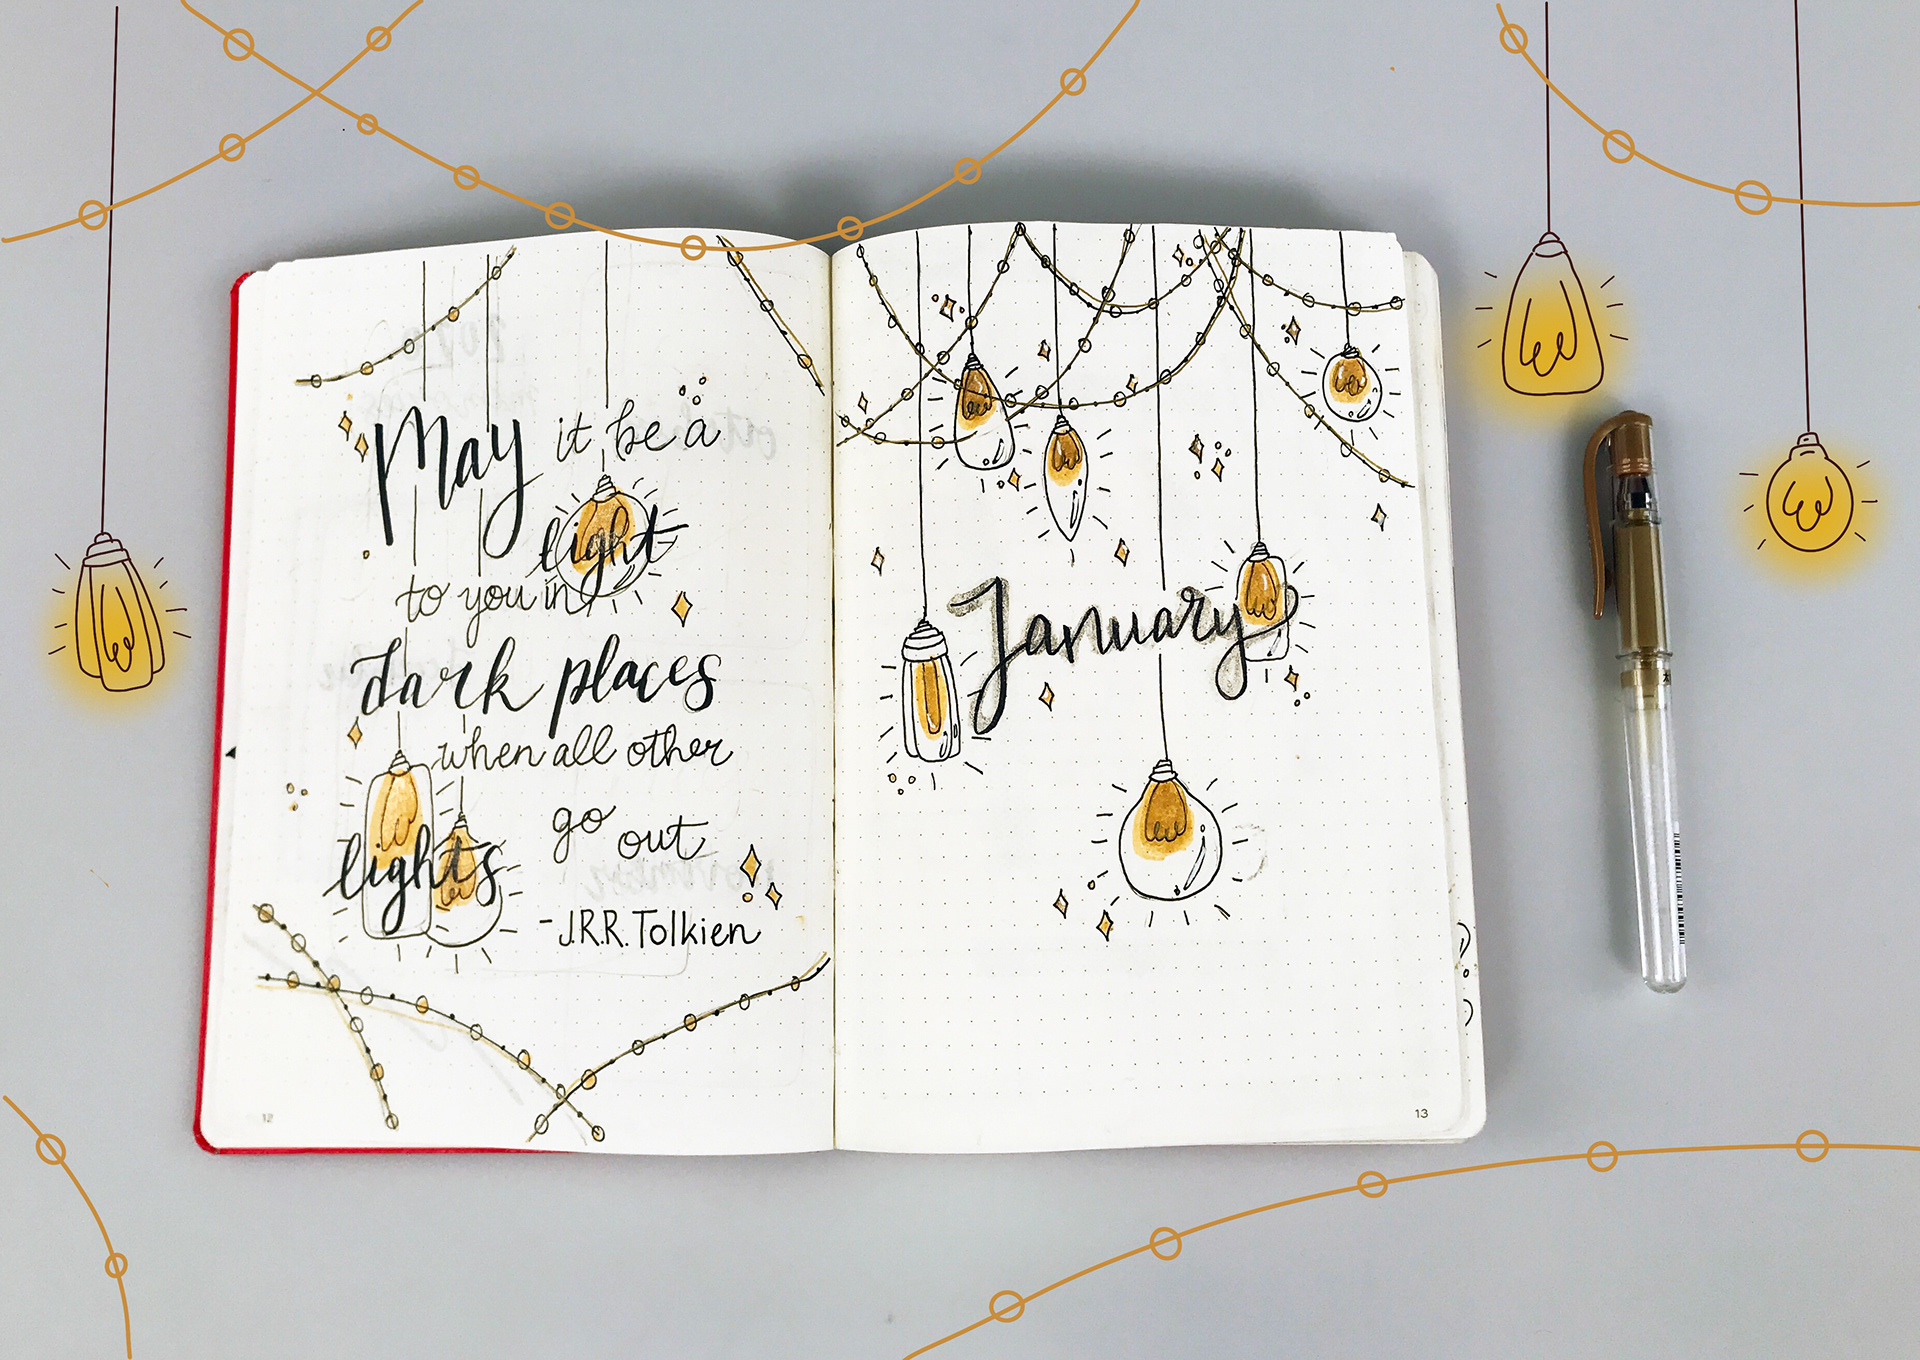 May it be a
light
to you in
dark places
when all other
lights go out
-J.R.R. Tolkien
12
January
13